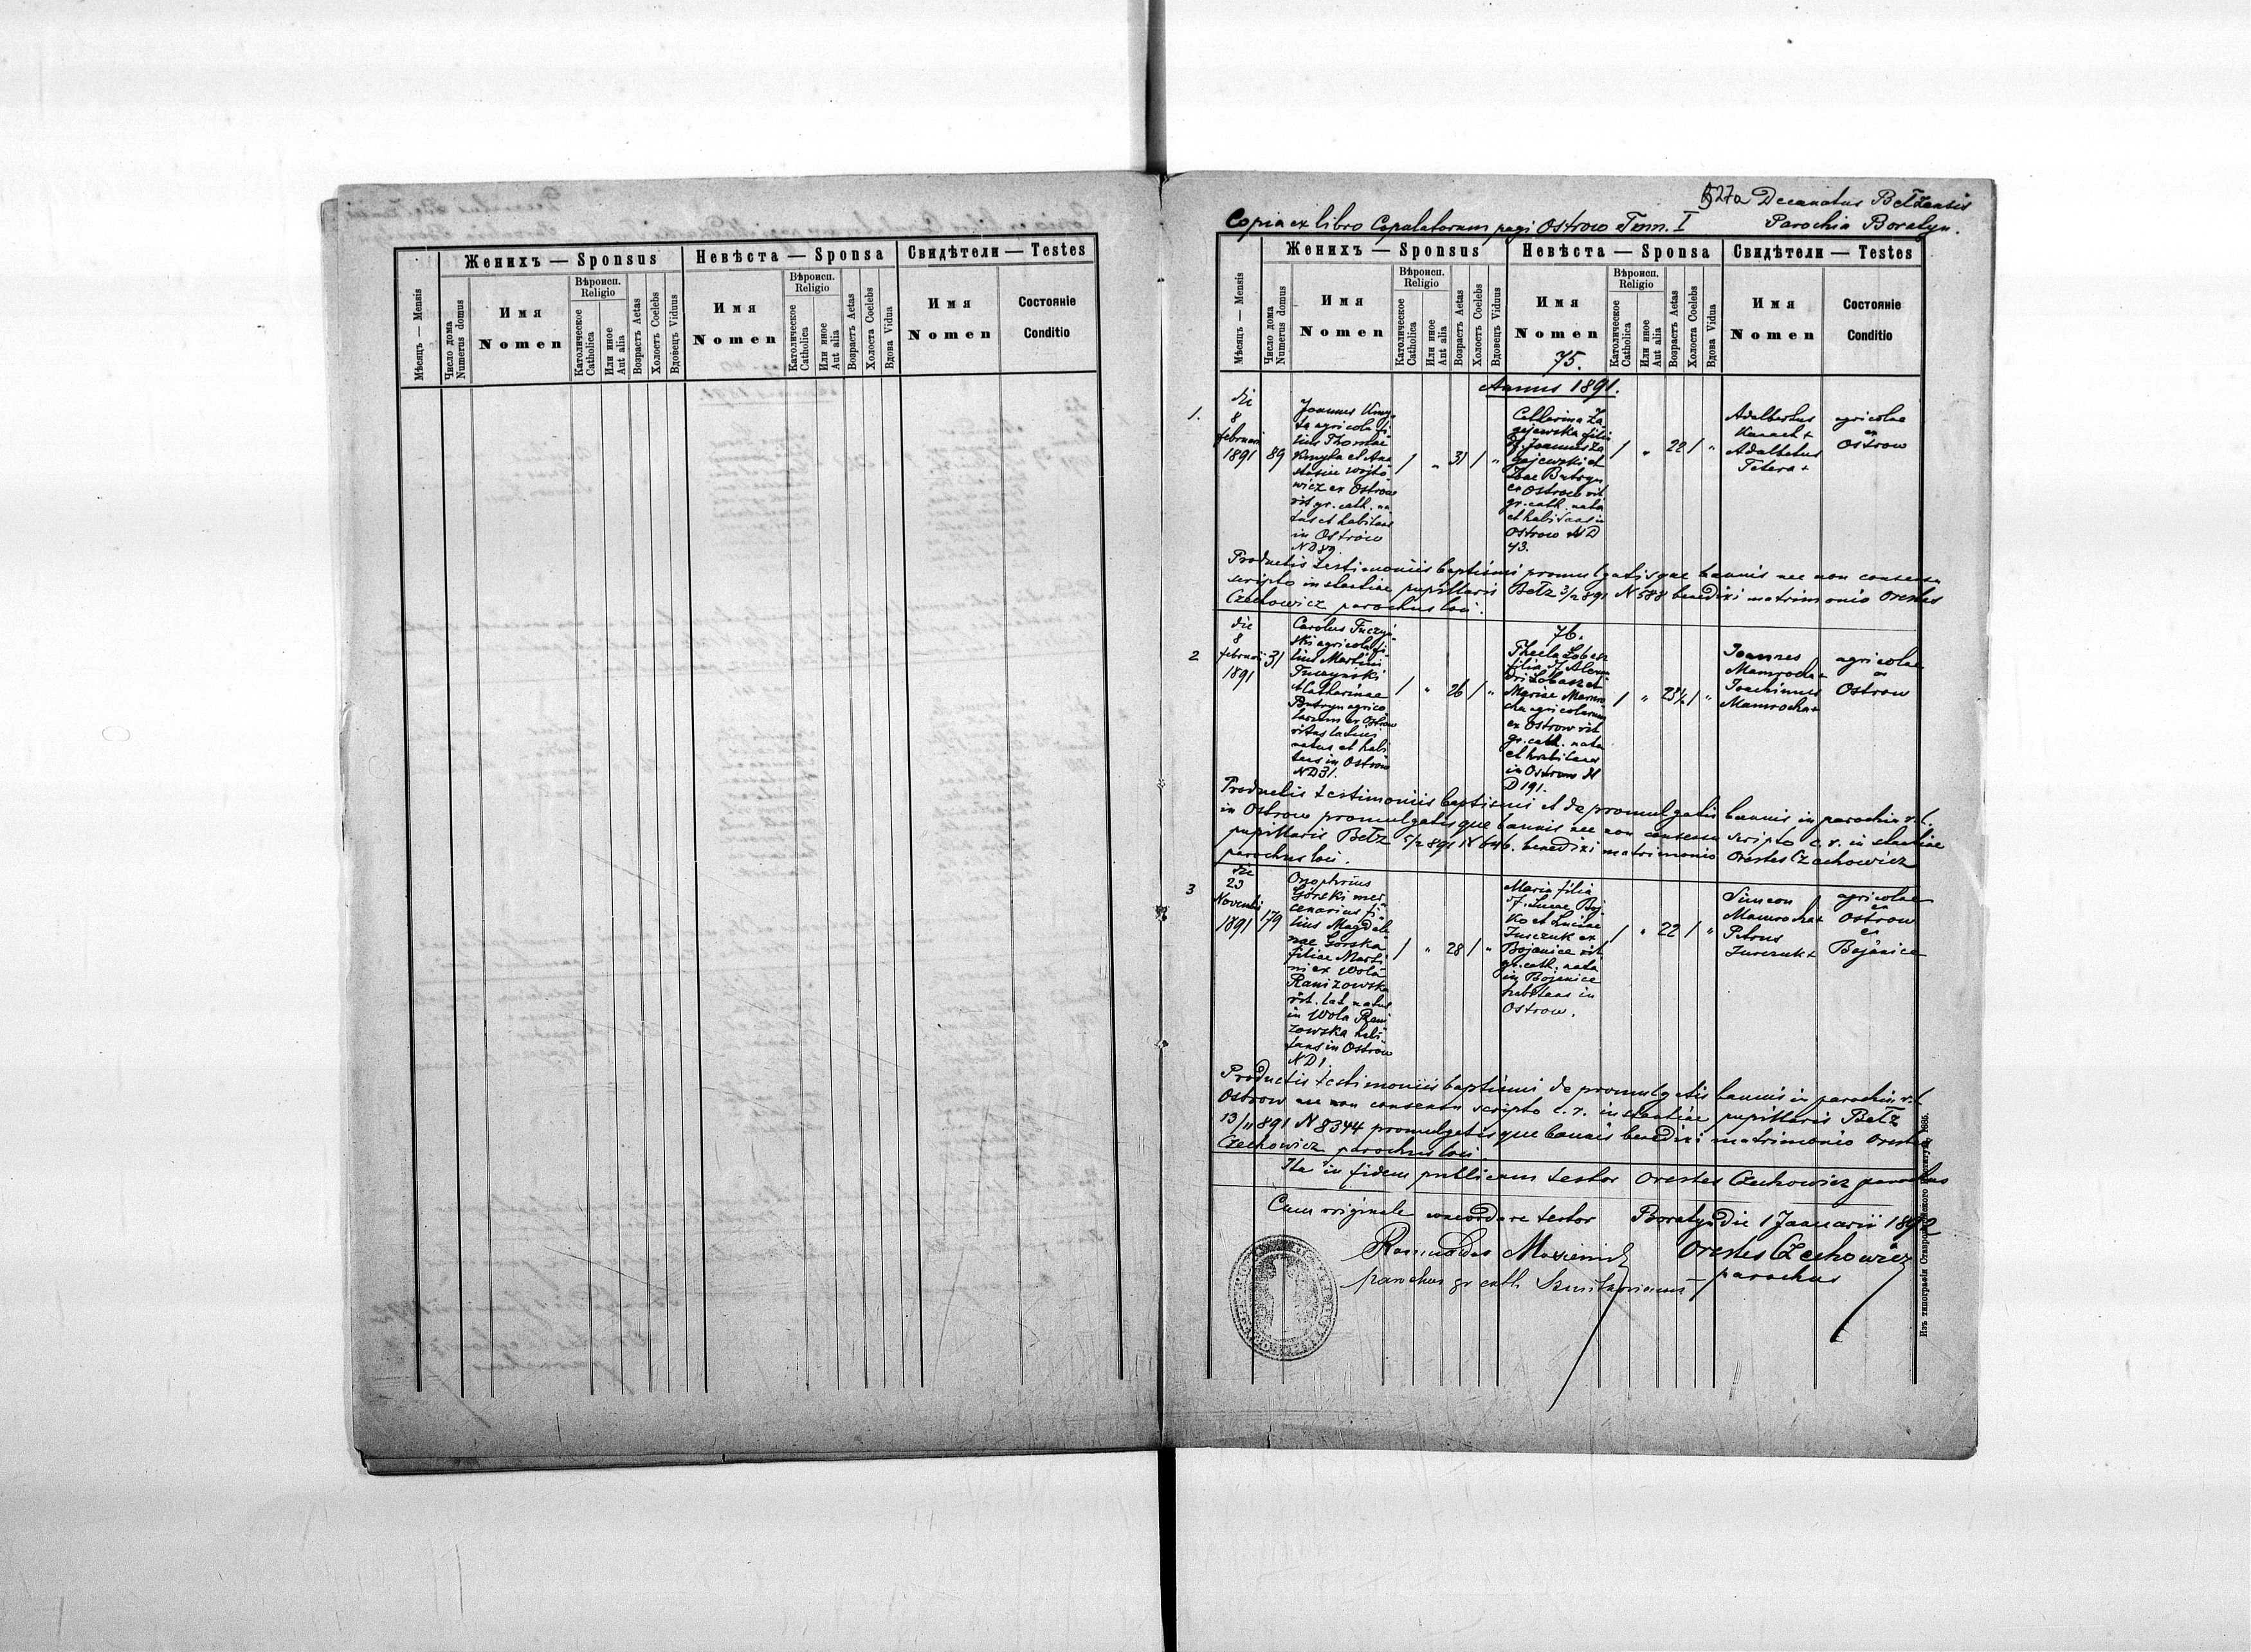 Женихъ — Sponsus
Невѣста — Sponsa
Свидѣтели — Testes
Мѣсяцъ — Mensis
Число дома
Numerus domus
Имя
Nomen
Вѣроисп.
Religio
Католическое
Catholica
Или иное
Aut alia
Возрастъ Aetas
Холостъ Coelebs
Вдовецъ Viduus
Имя
Nomen
Вѣроисп.
Religio
Католическое
Catholica
Или иное
Aut alia
Возрастъ Aetas
Холоста Coelebs
Вдова Vidua
Имя
Nomen
Состояніе
Conditio
527a Decanatus Bełzensis
Copia ex libro Copulatorum pagi Ostrow Tom. I
Parochia Boratyn.
Женихъ — Sponsus
Невѣста — Sponsa
Свидѣтели — Testes
Мѣсяцъ — Mensis
Число дома
Numerus domus
Имя
Nomen
Вѣроисп.
Religio
Католическое
Catholica
Или иное
Aut alia
Возрастъ Aetas
Холостъ Coelebs
Вдовецъ Viduus
Имя
Nomen
75.
Вѣроисп.
Religio
Католическое
Catholica
Или иное
Aut alia
Возрастъ Aetas
Холоста Coelebs
Вдова Vidua
Имя
Nomen
Состояніе
Conditio
Annus 1891.
1.
die
8
februari
1891
89
Joannes Kmy-
ta agricola fi-
lius Thomae
Kmyta et Ana
stasiae Wojto
wicz ex Ostrow
rit gr. cath. na
tus et habitans
in Ostrow
ND 89.
1 " 31 1 "
Catharina Za
gajewska filia
Joannis Za
gajewski et
Evae Butryn
ex Ostrow rit
gr. cath. nata
et habitans in
Ostrow ND
43.
1 " 22 1 "
Adalbertus
Kanach +
Adalbertus
Tetera +
agricolae
ex
Ostrow
Productis testimoniis baptismi promulgatisque bannis nec non consensu
scripto instantiae pupillaris Bełz 3/2 891 N 588 benedixi matrimonio Orestes
Czechowicz parochus loci.
2
die
8
februari
1891
31
Carolus Tuczyń-
ski agricola fi-
lius Martini
Tuczyński
et Catharinae
Butryn agrico
larum ex Ostrow
ritus latini
natus et habi
tans in Ostrow
ND 31.
1 " 26 1 "
76.
Thecla Łobasz
filia Alexan
dri Łobasz et
Mariae Mamro
cha agricolarum
ex Ostrow rit
gr. cath. nata
et habitans
in Ostrow N
D 191.
1 " 23½ 1 "
Joannes
Mamrocha +
Joachimus
Mamrocha +
agricolae
ex
Ostrow
Productis testimoniis baptismi et de promulgatis bannis in parochia r. l.
in Ostrow promulgatisque bannis nec non consensu scripto c. r. instantiae
pupillaris Bełz 5/2 891 N 646. benedixi matrimonio Orestes Czechowicz
parochus loci.
3
die
23
Novembri
1891
179
Onophrius
Górski mer
cenarius fi-
lius Magdale
nae Górska
filiae Marti
ni ex Wola
Ranizowska
rit. lat. natus
in Wola Rani
zowska habi
tans in Ostrow
ND 1.
1 " 28 1 "
Maria filia
Lucae Boj
ko et Luciae
Jurczuk ex
Bojanice rit
gr. cath. nata
in Bojanice
habitans in
Ostrow.
1 " 22 1 "
Simeon
Mamrocha +
Petrus
Jurczuk +
agricolae
ex
Ostrow
ex
Bojanice
Productis testimoniis baptismi de promulgatis bannis in parochia r. l.
Ostrow nec non consensu scripto c. r. instantiae pupillaris Bełz
13/11 891 N 8344 promulgatisque bannis benedixi matrimonio Orestes
Czechowicz parochus loci.
Ita in fidem publicam testor Orestes Czechowicz parochus
Cum originale concordare testor
Boratyn die 1 Januarii 1892
Orestes Czechowicz
parochus gr cath
parochus